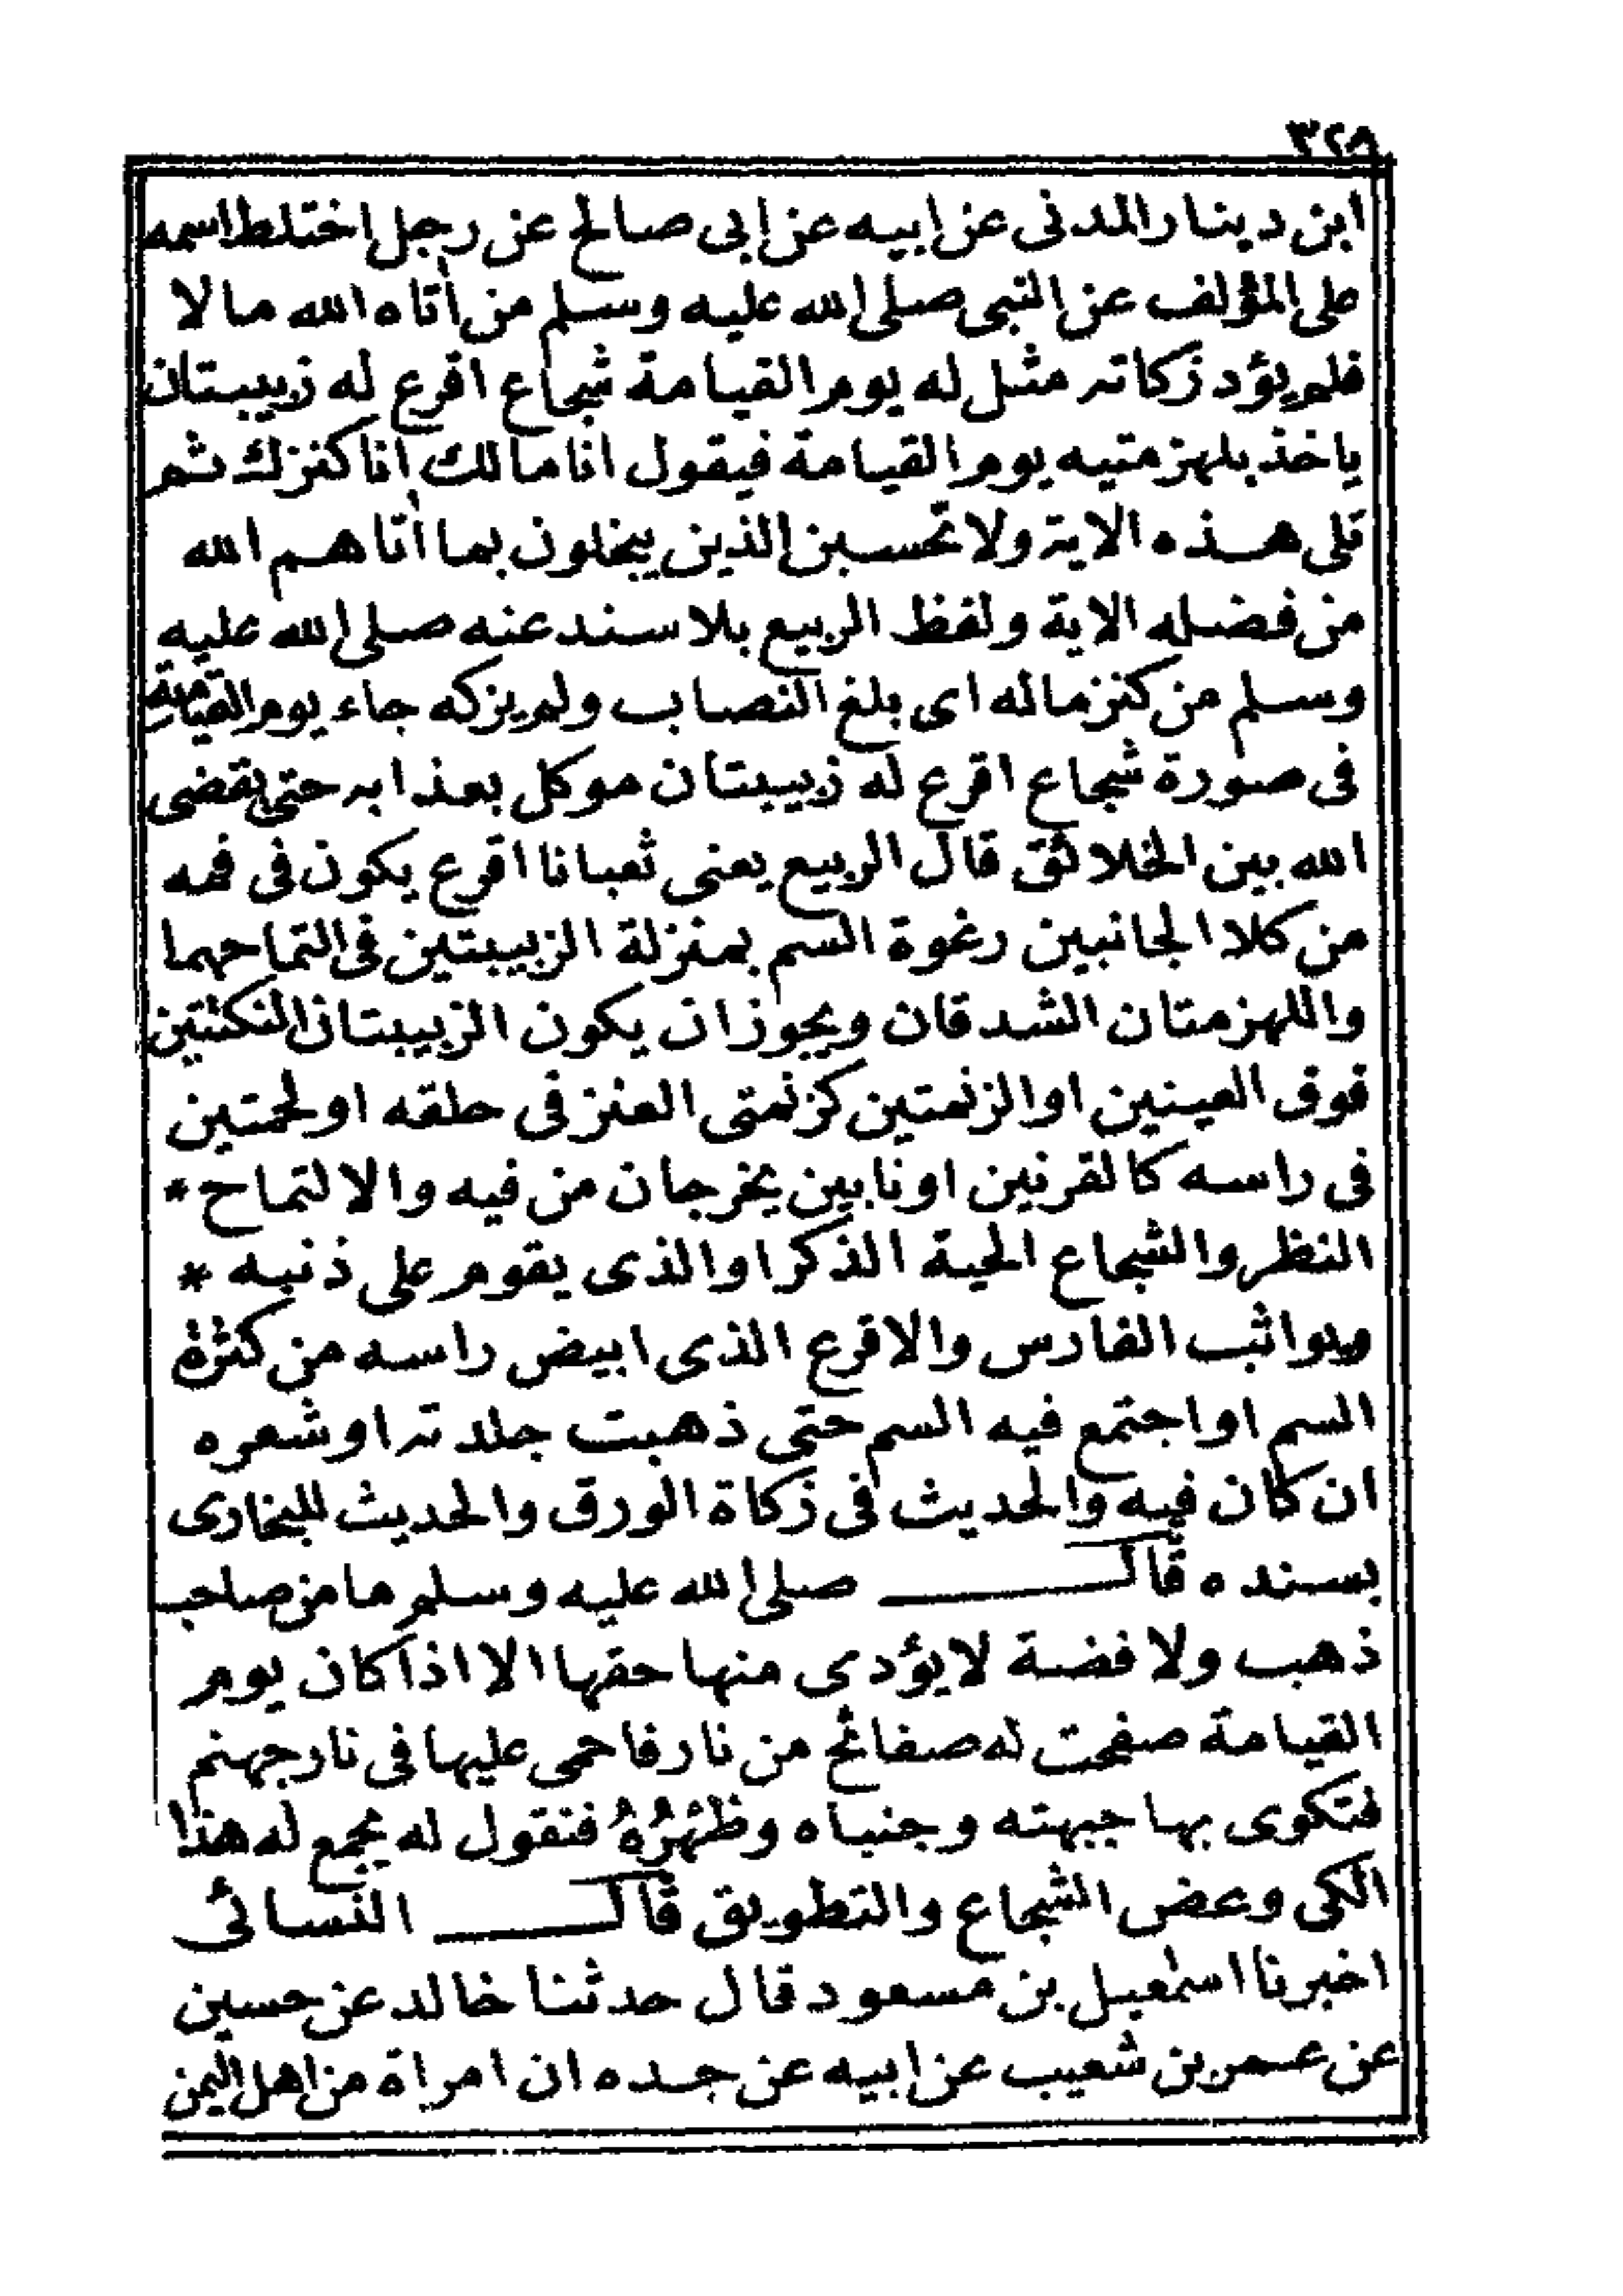 ٣٢٨
ابن دينار المدنى عن ابيه عن ابى صالح عن رجل اختلط اسمه
على المؤلف عن النبى صلى الله عليه وسلم من أتاه الله مالا
فلم يؤد زكاته مثل له يوم القيامة شجاع اقرع له زبيبتان
ياخذ بلهزمتيه يوم القيامة فيقول انا مالك انا كنزك ثم
تلى هذه الاية ولا تحسبن الذين يبخلون بما أتاهم الله
من فضله الاية ولفظ الربيع بلا سند عنه صلى الله عليه
وسلم من كنز ماله اى بلغ النصاب ولم يزكه جاء يوم القيامة
فى صورة شجاع اقرع له زبيبتان موكل بعذابه حتى يقضى
الله بين الخلائق قال الربيع يعنى ثعبانا اقرع يكون فى فمه
من كلا الجانبين رغوة السم بمنزلة الزبيبتين فى التماحهما
واللهزمتان الشدقان ويجوز ان يكون الزبيبتان النكتتين
فوق العينين او الزنمتين كزنمتى العنز فى حلقه او لحمتين
فى راسه كالقرنين او نابين يخرجان من فيه والالتماح *
النظر والشجاع الحية الذكر او الذى يقوم على ذنبه *
ويواثب الفارس والاقرع الذى ابيض راسه من كثرة
السم او اجتمع فيه السم حتى ذهبت جلدته او شعره
ان كان فيه والحديث فى زكاة الورق والحديث للبخارى
بسنده قال صلى الله عليه وسلم ما من صاحب
ذهب ولا فضة لا يؤدى منها حقها الا اذا كان يوم
القيامة صفحت له صفائح من نار فاحمى عليها فى نار جهنم
فتكوى بها جبهته وجنباه وظَهْرُهُ فنقول له يجمع له هذا
الكى وعض الشجاع والتطويق قال النسائى
اخبرنا اسمعيل بن مسعود قال حدثنا خالد عن حسين
عن عمر بن شعيب عن ابيه عن جده ان امراة من اهل اليمن